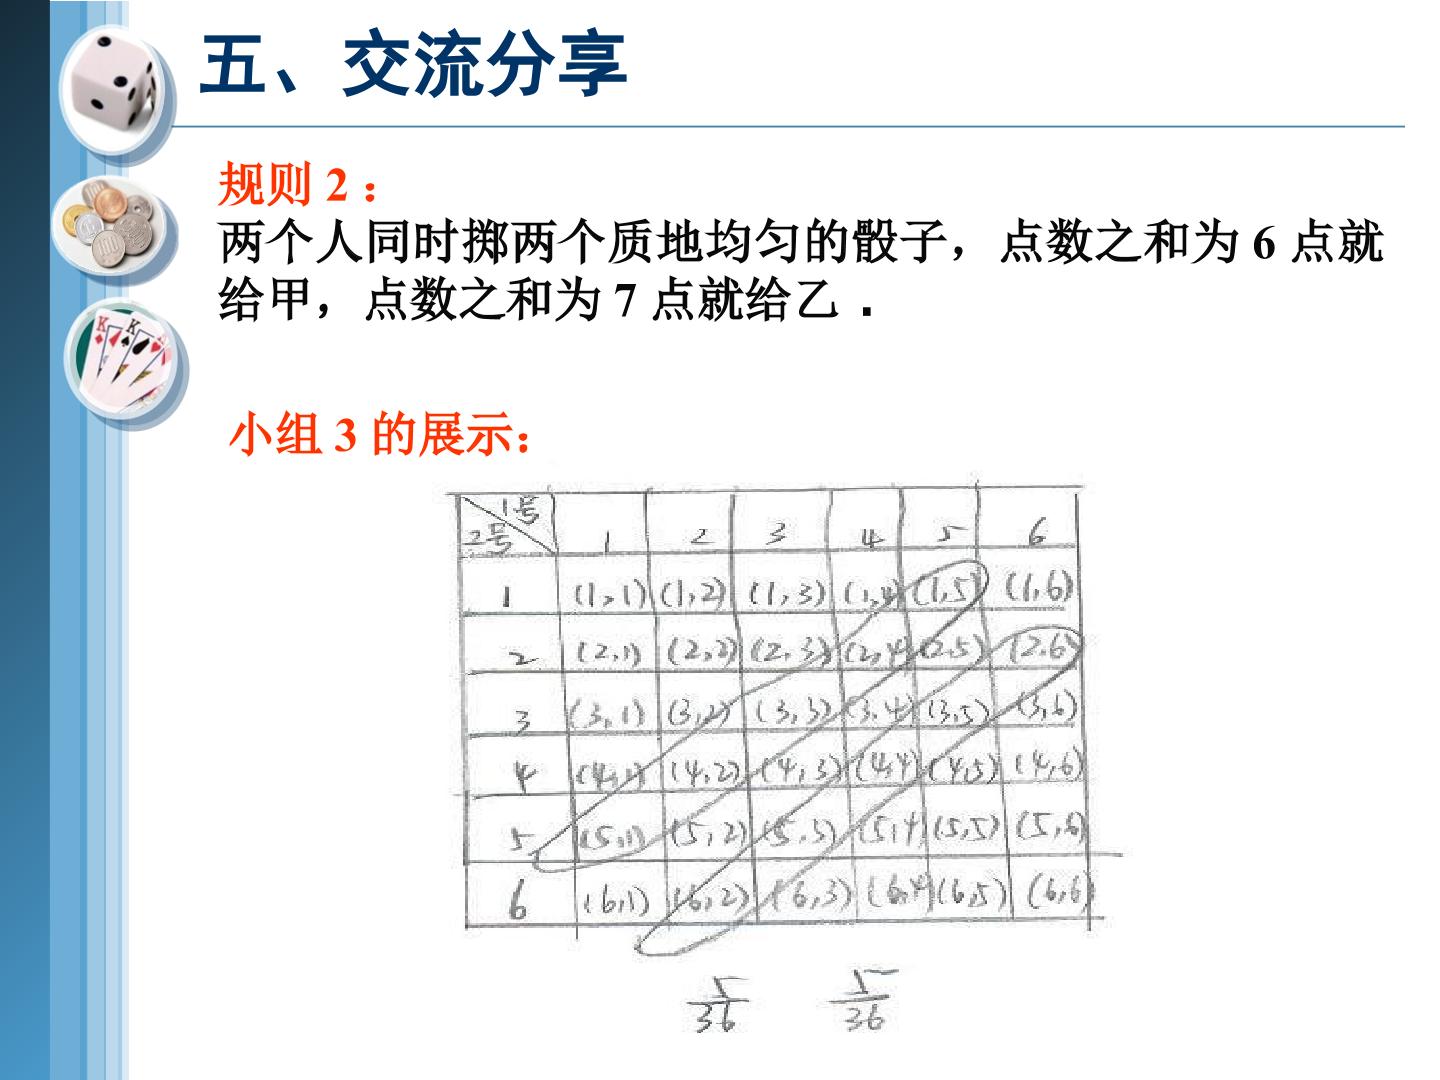 五、交流分享
规则 2 ：
两个人同时掷两个质地均匀的骰子，点数之和为 6 点就
给甲，点数之和为 7 点就给乙 ．
小组 3 的展示：
1号
2号 1 2 3 4 5 6
1 (1,1) (1,2) (1,3) (1,4) (1,5) (1,6)
2 (2,1) (2,2) (2,3) (2,4) (2,5) (2,6)
3 (3,1) (3,2) (3,3) (3,4) (3,5) (3,6)
4 (4,1) (4,2) (4,3) (4,4) (4,5) (4,6)
5 (5,1) (5,2) (5,3) (5,4) (5,5) (5,6)
6 (6,1) (6,2) (6,3) (6,4) (6,5) (6,6)
5/36 5/36